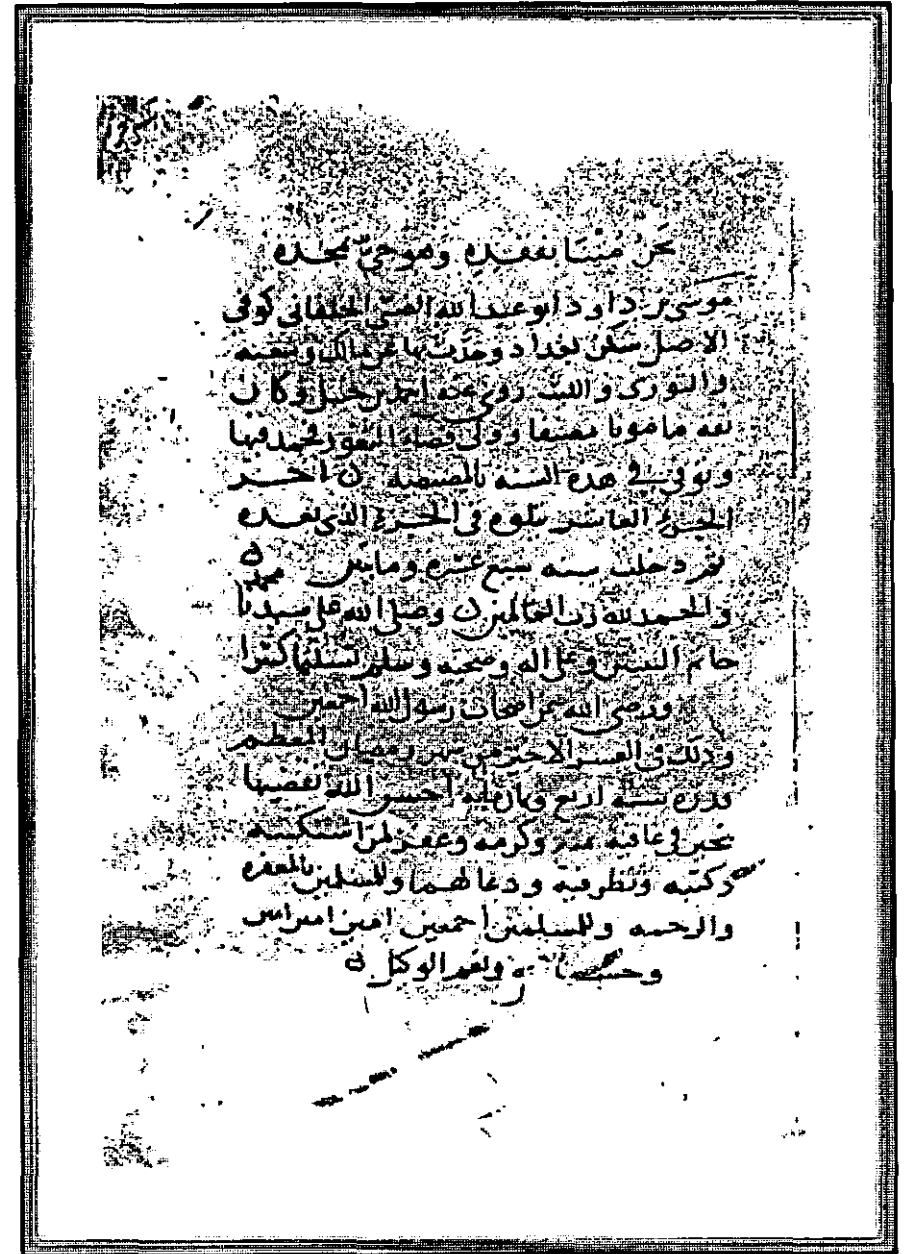 نحن متنا بفقده وهو حي بمجده
موسى بن داود ابو عبد الله الضبي الخلقاني كوفي
الاصل سكن بغداد وحدث بها عن مالك وشعبه
والثوري والليث روى عنه احمد بن حنبل وكان
ثقه مامونا مصنفا وولي قضاء الثغور فحمد فيها
وتوفي في هذه السنه بالمصيصه اخـــر
الجزء العاشر يتلوه في الجزء الذي بعده
ثم دخلت سنه سبع عشره ومايتين
والحمد لله رب العالمين وصلى الله على سيدنا محمد
خاتم النبيين وعلى اله وصحبه وسلم تسليما كثيرا
ورضي الله عن اصحاب رسول الله اجمعين
وذلك في العشر الاخير من شهر رمضان المعظم
سنه اربع وثمان مايه احسن الله تقضيها
بخير في عافيه بمنه وكرمه وغفر لمن استكتبه
وكتبه ونظر فيه ودعا لهما وللمسلمين بالمغفره
والرحمه وللمسلمين اجمعين امين امين امين
وحسبنا الله ونعم الوكيل